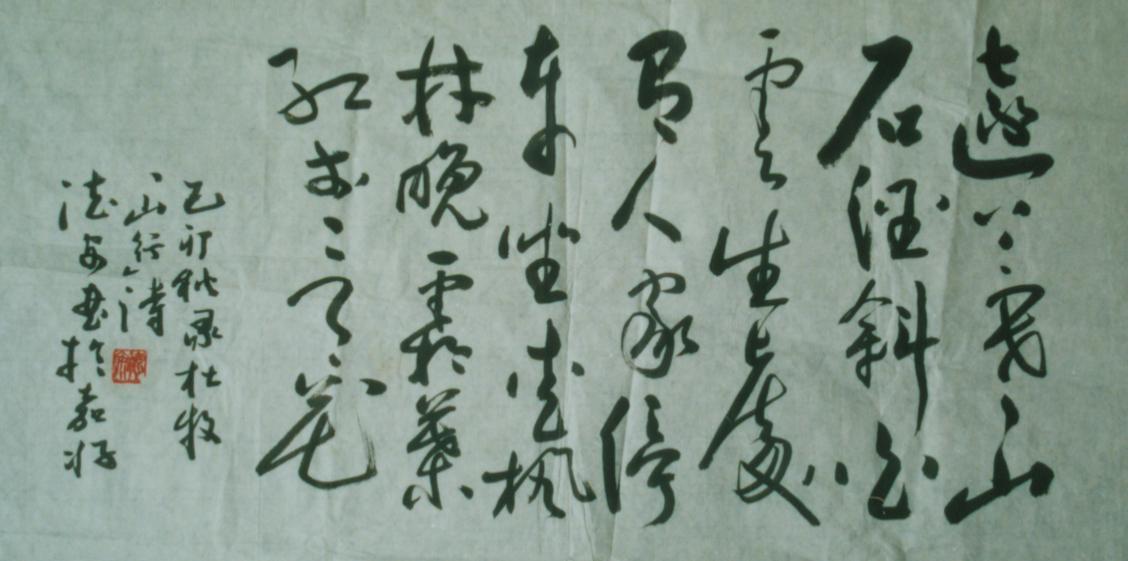 遠上寒山
石徑斜白
雲生處
有人家停
車坐愛楓
林晚霜葉
紅於二月花
卯秋录杜牧
山行诗
书於嘉